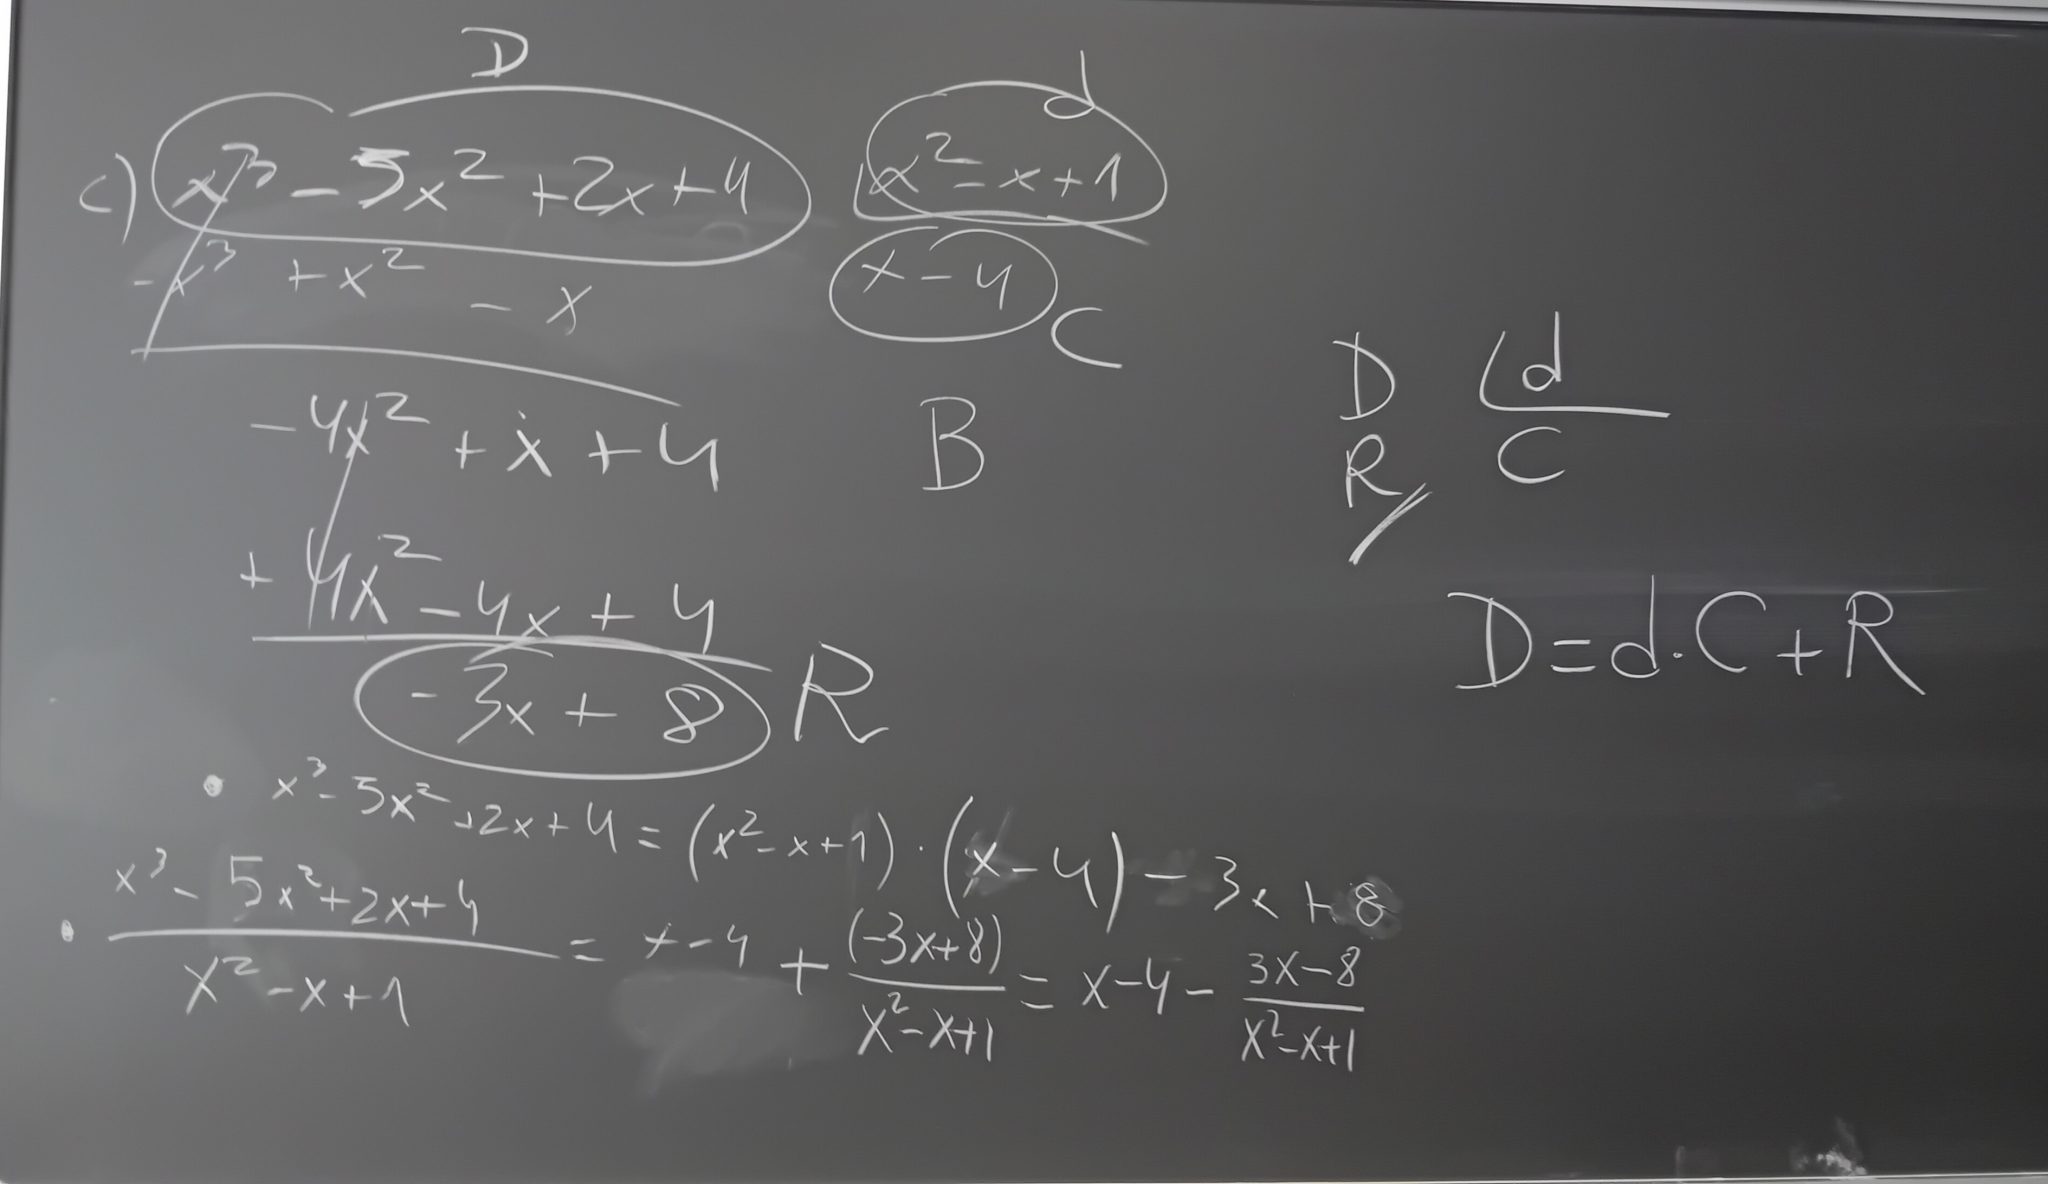 D
d
c) x³ - 5x² + 2x + 4
x² - x + 1
- x³ + x² - x
x - 4
C
- 4x² + x + 4
B
+ 4x² - 4x + 4
- 3x + 8
R
D d
R C
D = d · C + R
• x³ - 5x² + 2x + 4 = (x² - x + 1) · (x - 4) - 3x + 8
• \frac{x³ - 5x² + 2x + 4}{x² - x + 1} = x - 4 + \frac{(-3x+8)}{x² - x + 1} = x - 4 - \frac{3x - 8}{x² - x + 1}